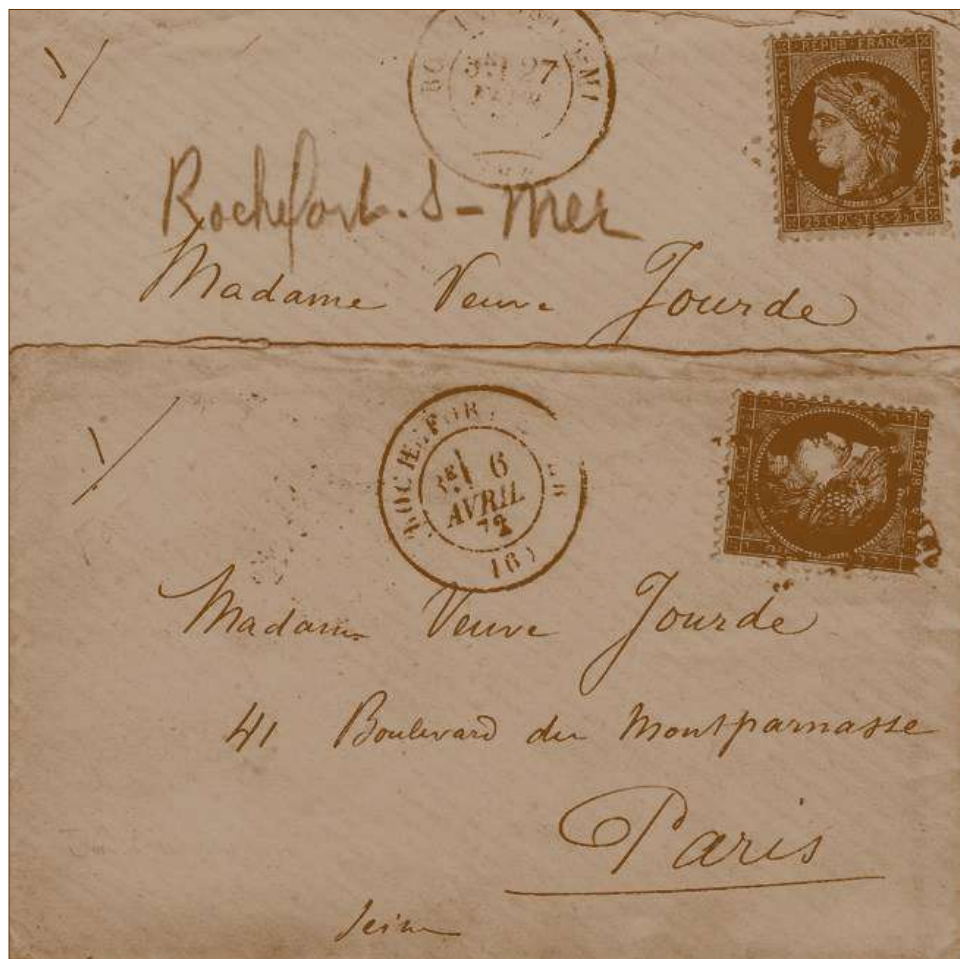 REPUB·FRANC
3E/ 27
25 C POSTES 25 C
Rochefort-S-Mer
Madame Veuve Jourde
ROCHEFORT
3E/ 6
AVRIL
72
16)
Madame Veuve Jourde
41 Boulevard du Montparnasse
Paris
Seine